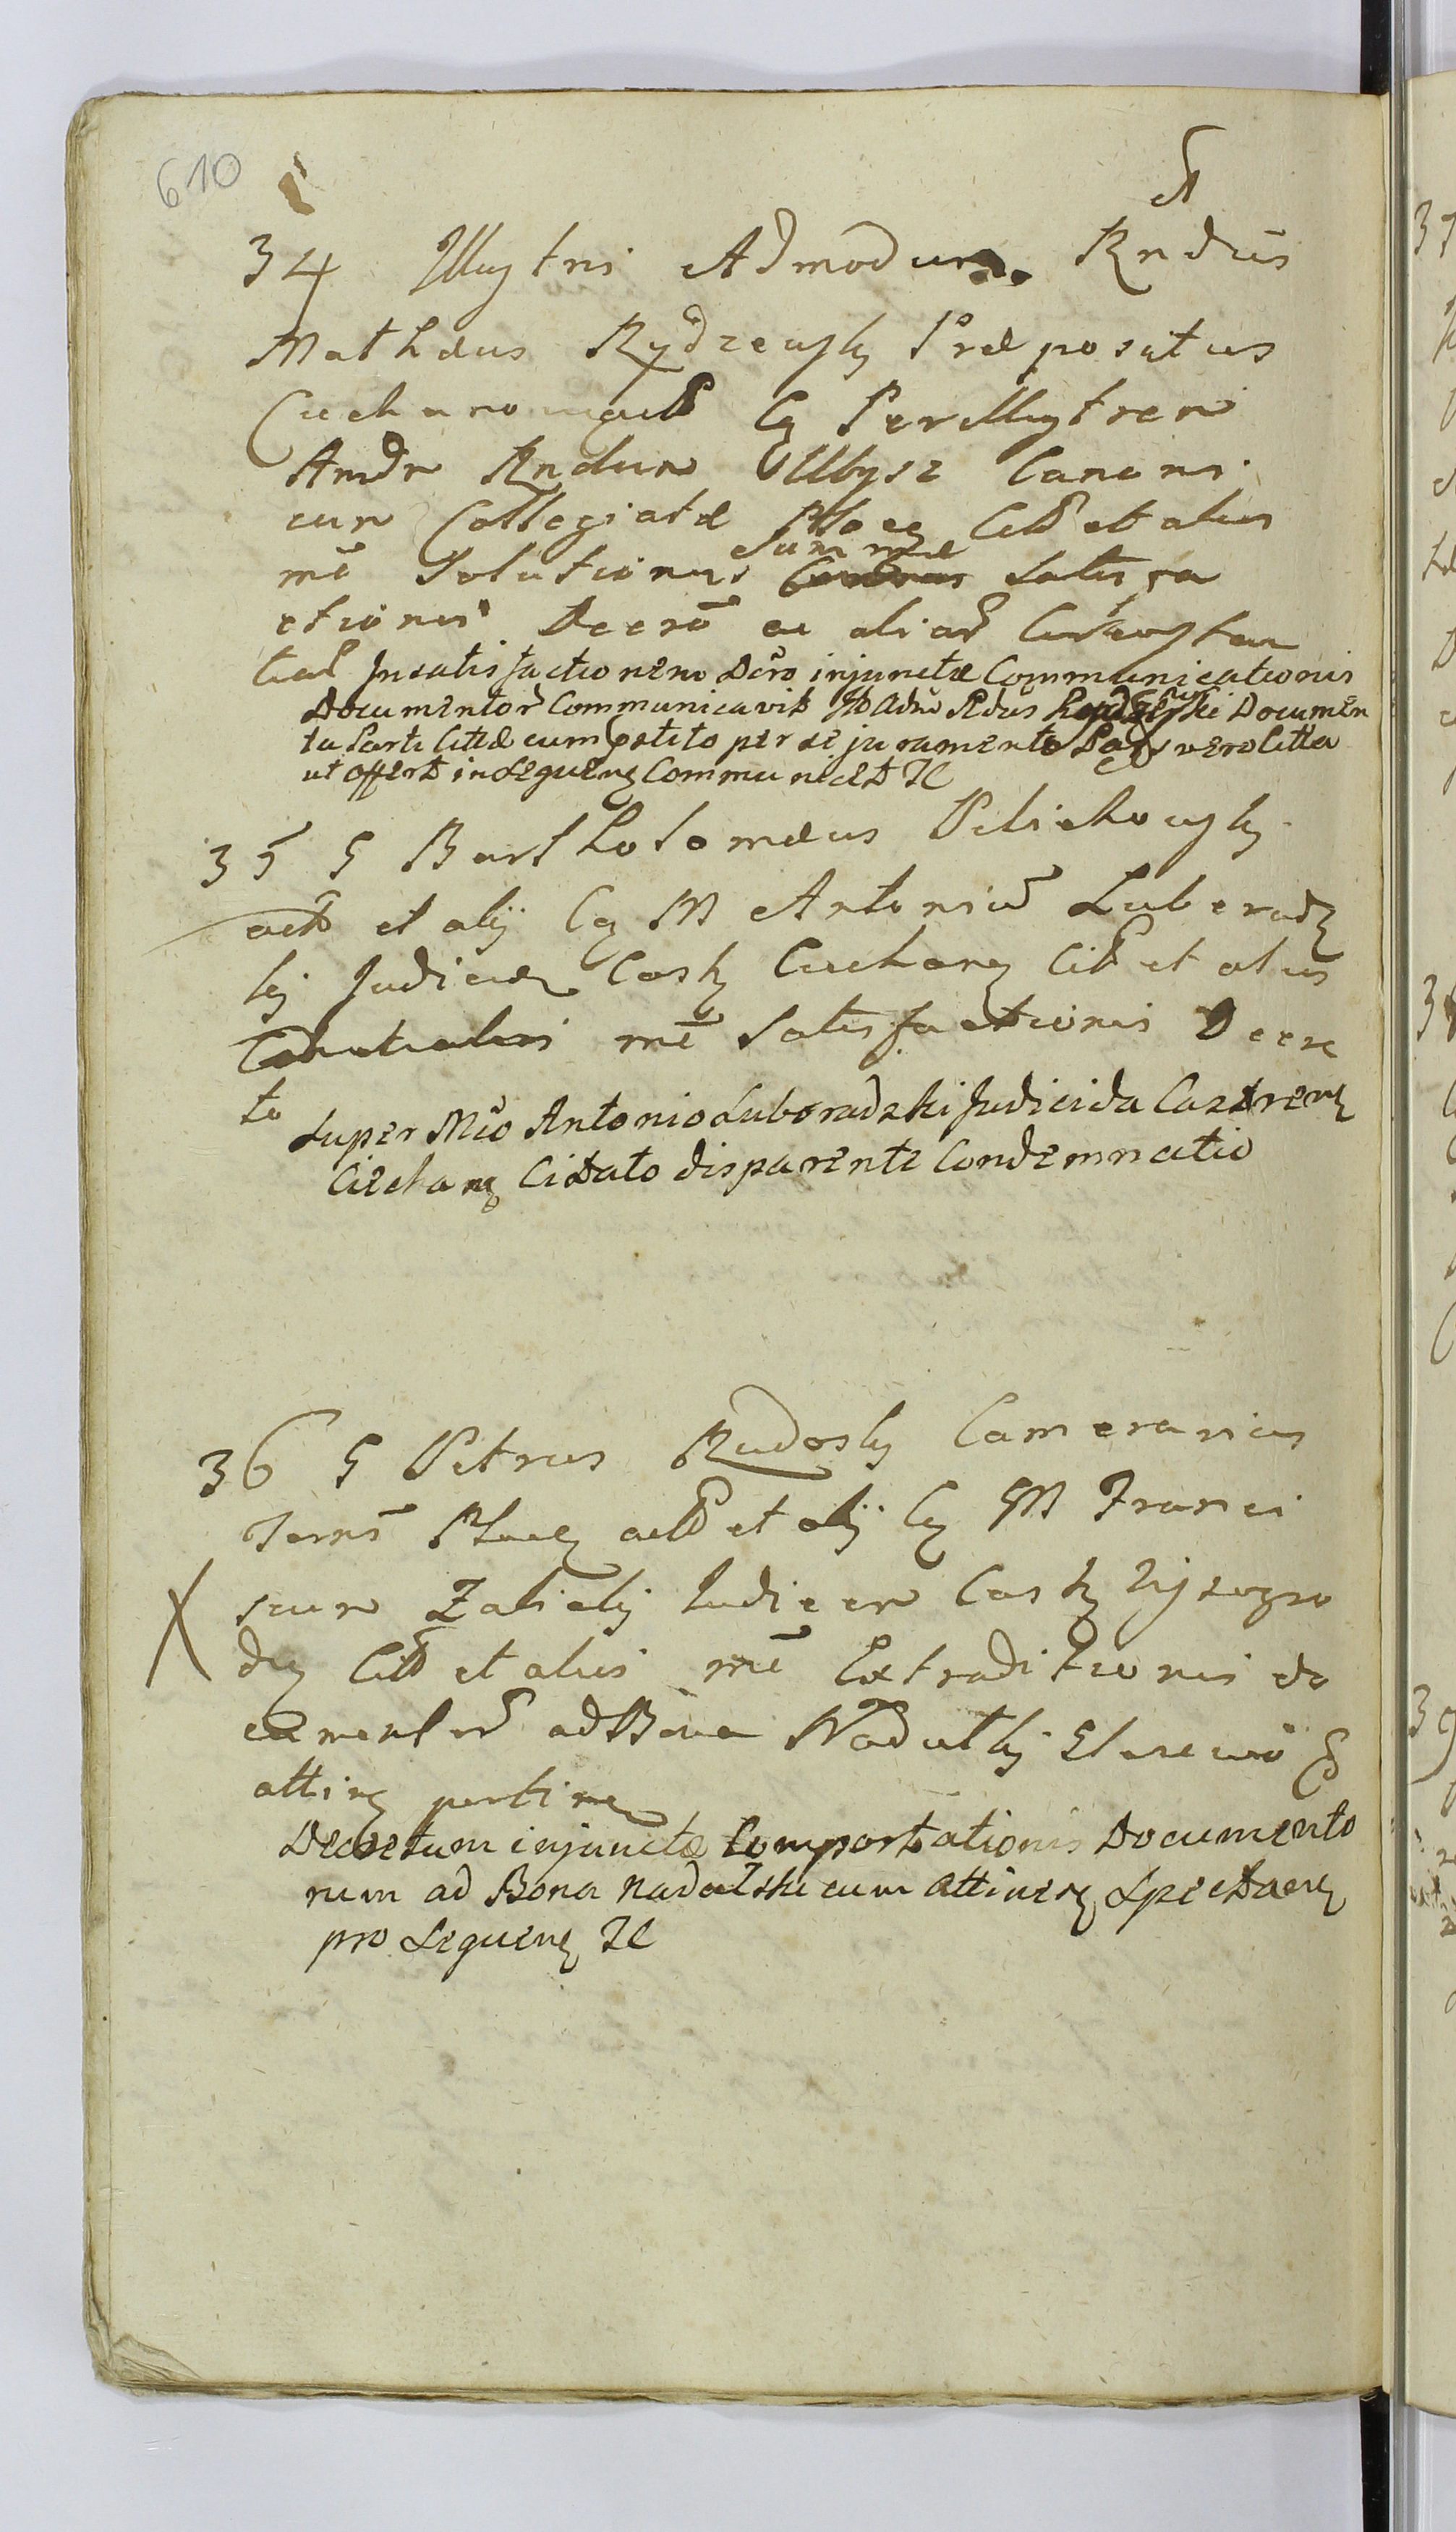 610
A
34 Illustris Admodum Rndus
Mathæus Rydzewsky Præpositus
Ciechanoviens Cq Perillustrem
Amdm Rndum Ullysz Canoni
cum Collegiatæ Plocq Citt et alios
mē Solutionis Summæ Satisfa
ctionis Decrō ac aliar Circumstan
tiar Insatisfactionem Dcro injunctæ Communicationis
Documentor Communicavit Adm Rdus Documen
ta Parti Cittæ cum petito per se juramento Pars vero Citta
ut offert in Sequenq Communicet Il
35 G Bartholomæus Pelichowsky
actt et alij Cq M Antoniū Luboradz
ky Judicem Castr Ciechanq Citt et alios
mē Satisfactionis Decre
to
Super Mco Antonio Luboradzki Judicida Castrenq
Ciechanq Citato disparente Condemnatio
36 G Petrus Rudosky Camerarius
Terrs Plocq actt et alij Cq M Franci
X
scum Zaliesky Judicem Castr Wyszogro
dq Citt et alios mē Extraditionis do
cumentor ad Bona Nadulky
attinq pertinen
Decretum injunctæ Comportationis Documento
rum ad Bona Nadulski cum attinenq Spectanq
pro Sequenq Il